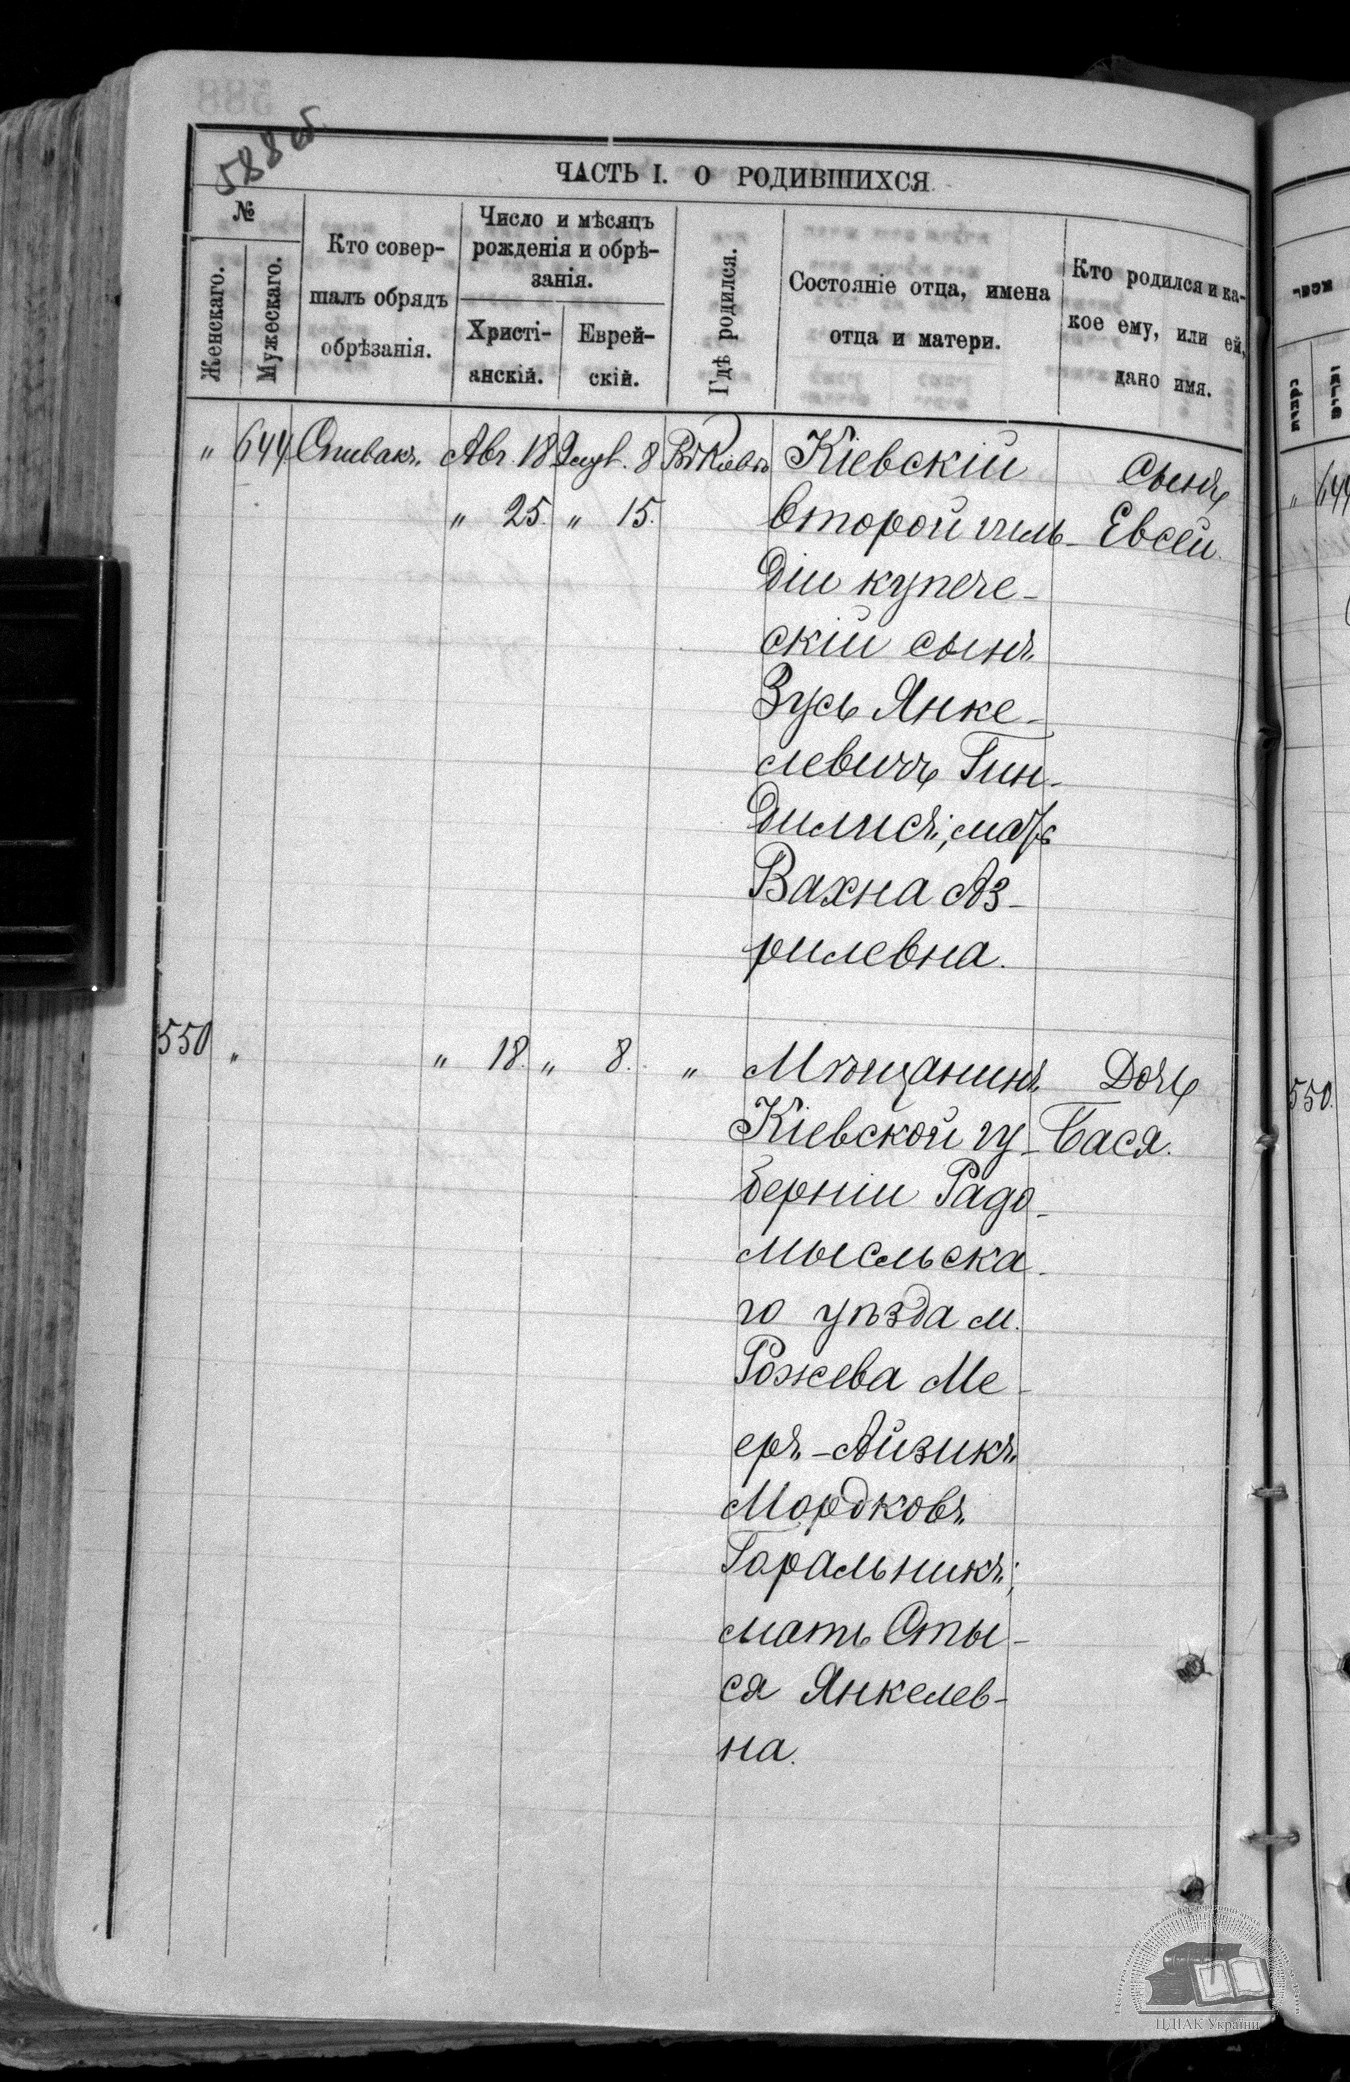 588 об.
ЧАСТЬ I. О РОДИВШИХСЯ
№
Женскаго.
Мужескаго.
Кто совер-
шалъ обрядъ
обрѣзанія.
Число и мѣсяцъ
рожденія и обрѣ-
занія.
Христі-
анскій.
Еврей-
скій.
Гдѣ родился.
Состояніе отца, имена
отца и матери.
Кто родился и ка-
кое ему, или ей,
дано имя.
" 644 Спивакъ. Авг. 18 8 Въ Кіевѣ Кіевскій Сынъ
" 25. " 15. второй гиль- Евсей.
діи купече-
скій сынъ
Зусь Янке-
левичъ Гин-
дилисъ; мать
Вахна Аз-
рилевна.
550 " " 18. " 8. " Мѣщанинъ Дочь
Кіевской гу- Бася.
берніи Радо-
мысльска-
го уѣзда м.
Рожева Ме-
еръ-Айзикъ
Мордковъ
Гаральникъ;
мать Сты-
ся Янкелев-
на.
644
550.
ЦДІАК України